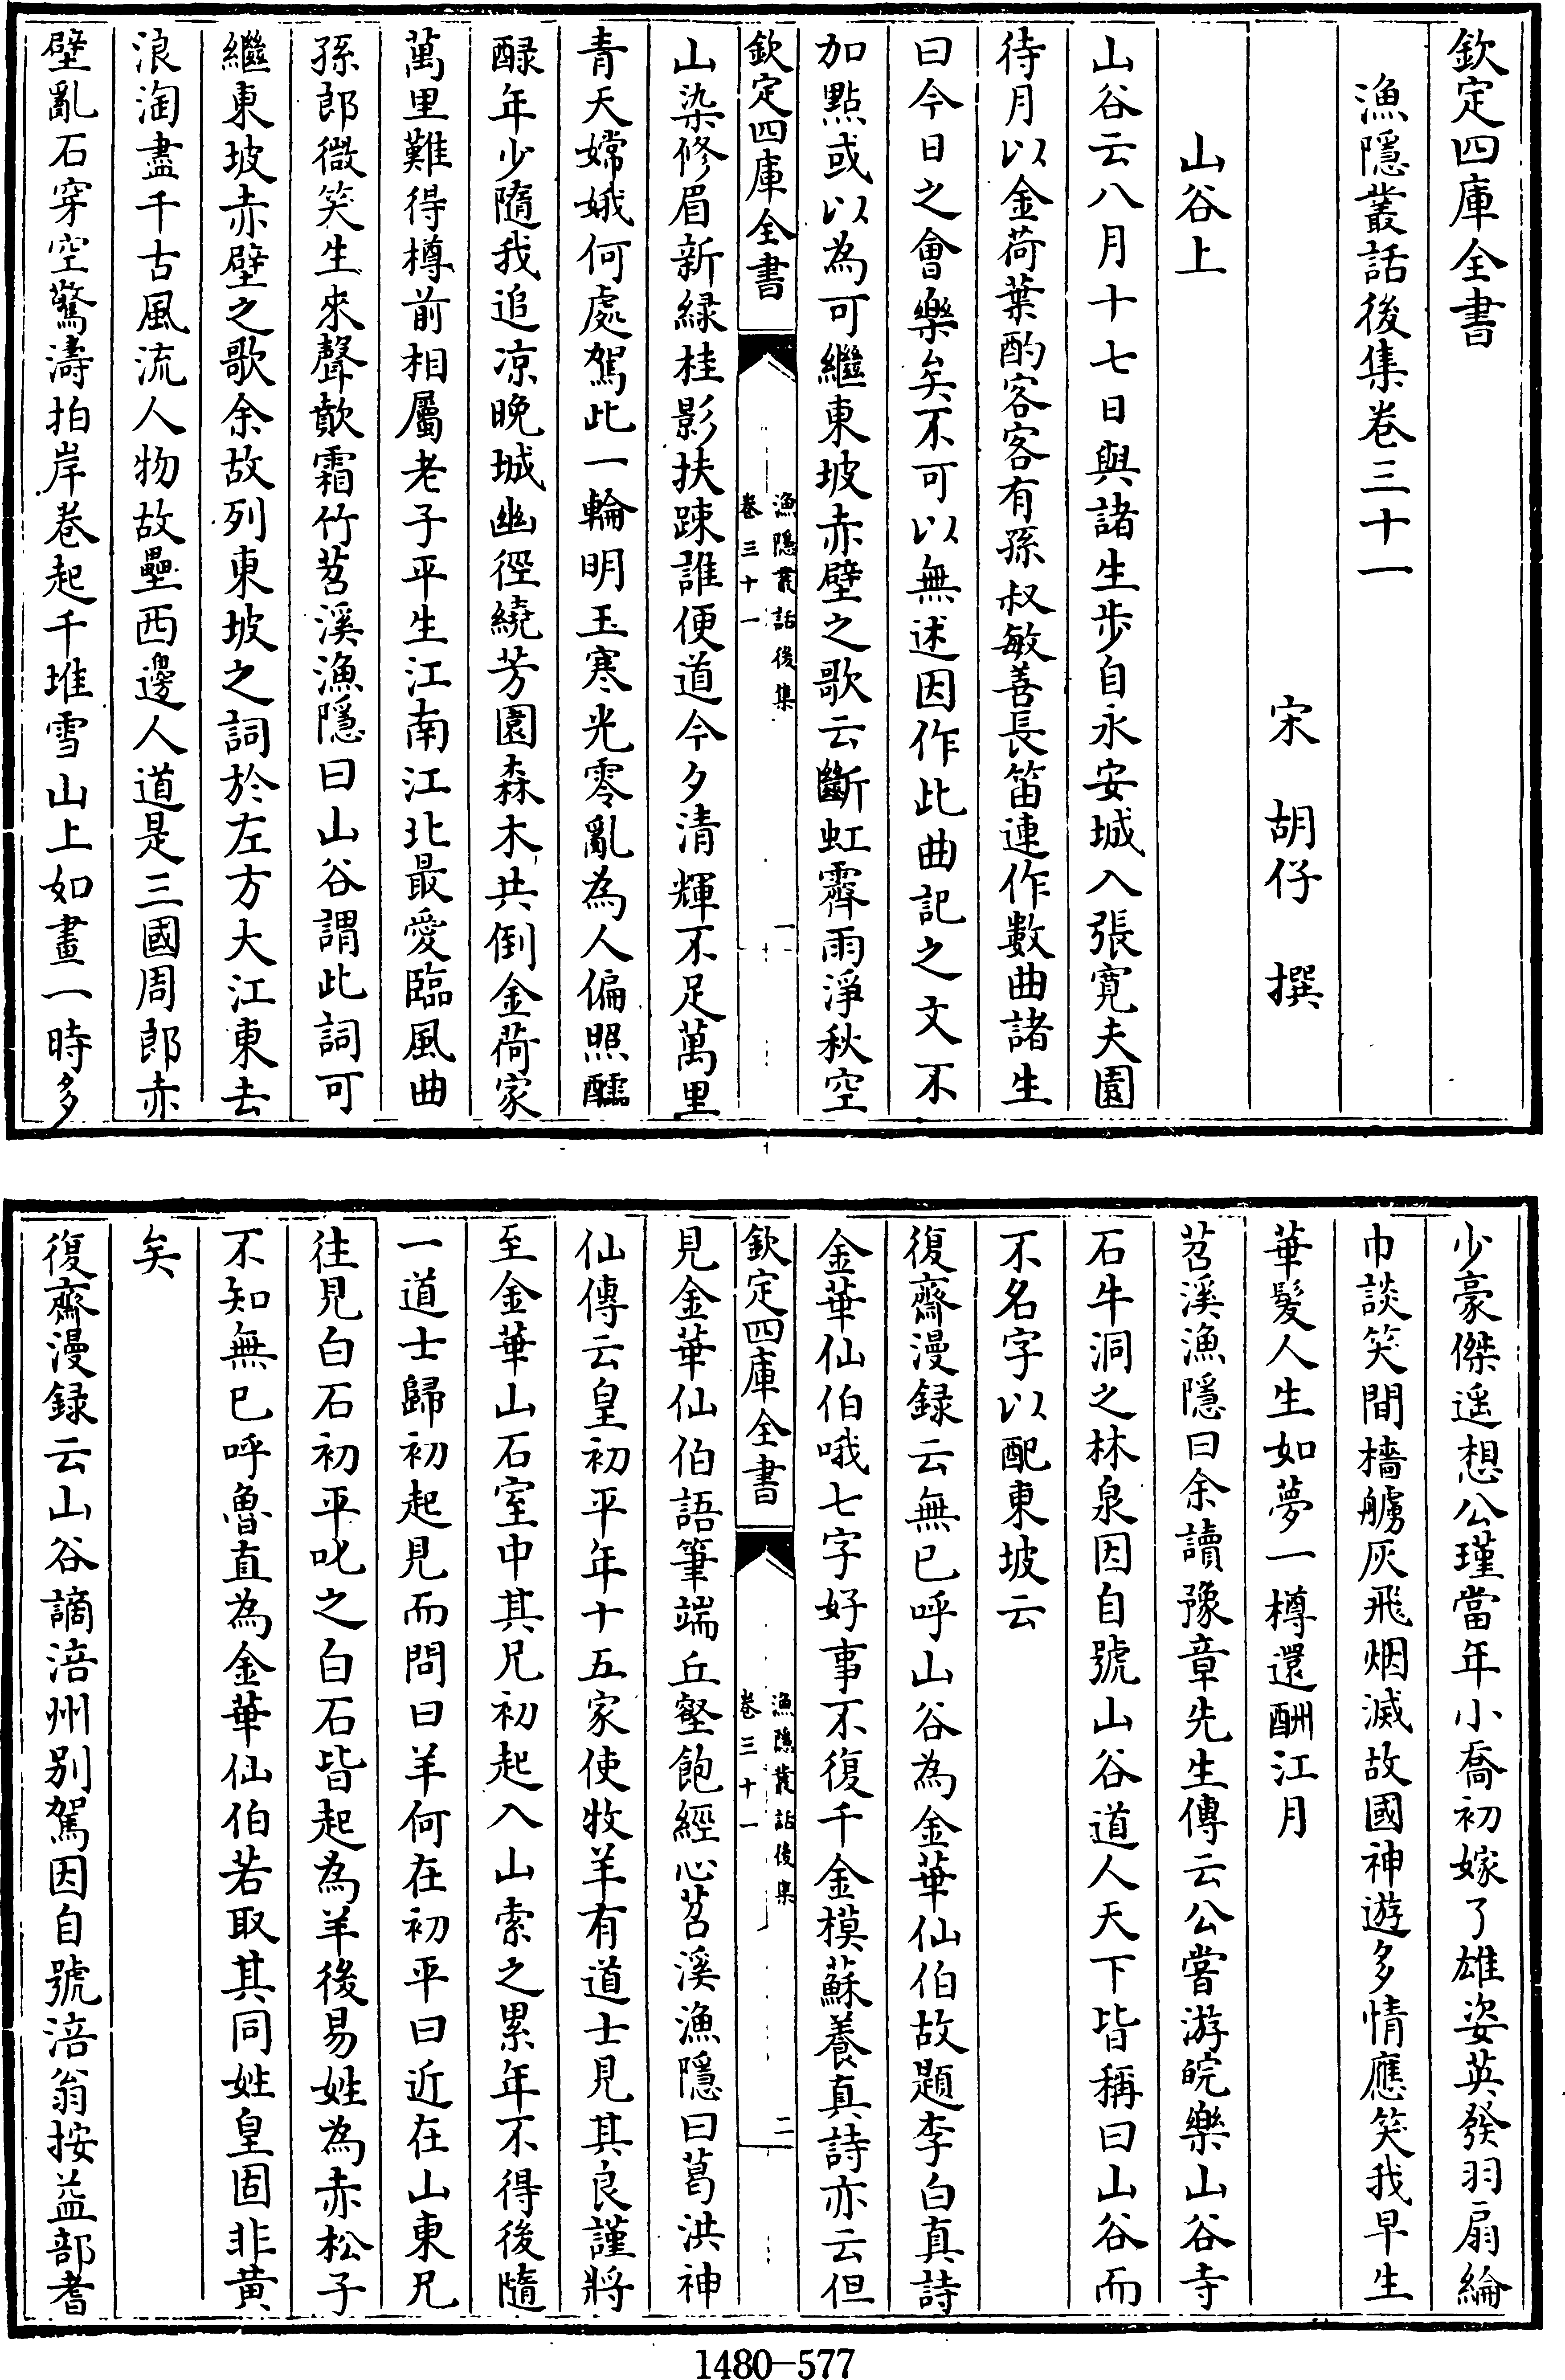 欽定四庫全書
漁隱叢話後集卷三十一
宋 胡仔 撰
山谷上
山谷云八月十七日與諸生步自永安城入張寛夫園
待月以金荷葉酌客客有孫叔敏善長笛連作數曲諸生
曰今日之會樂矣不可以無述因作此曲記之文不
加點或以為可繼東坡赤壁之歌云斷虹霽雨淨秋空
欽定四庫全書
漁隱叢話後集
卷三十一
一
山染修眉新緑桂影扶踈誰便道今夕清輝不足萬里
青天嫦娥何處駕此一輪明玉寒光零亂為人偏照醽
醁年少隨我追凉晚城幽徑繞芳園森木共倒金荷家
萬里難得樽前相屬老子平生江南江北最愛臨風曲
孫郎微笑生來聲歕霜竹苕溪漁隱曰山谷謂此詞可
繼東坡赤壁之歌余故列東坡之詞於左方大江東去
浪淘盡千古風流人物故壘西邊人道是三國周郎赤
壁亂石穿空驚濤拍岸卷起千堆雪山上如畫一時多
少豪傑遥想公瑾當年小喬初嫁了雄姿英發羽扇綸
巾談笑間檣艣灰飛烟滅故國神遊多情應笑我早生
華髮人生如夢一樽還酬江月
苕溪漁隱曰余讀豫章先生傳云公嘗游皖樂山谷寺
石牛洞之林泉因自號山谷道人天下皆稱曰山谷而
不名字以配東坡云
復齋漫録云無已呼山谷為金華仙伯故題李白真詩
金華仙伯哦七字好事不復千金模蘇養真詩亦云但
欽定四庫全書
漁隱叢話後集
卷三十一
二
見金華仙伯語筆端丘壑飽經心苕溪漁隱曰葛洪神
仙傳云皇初平年十五家使牧羊有道士見其良謹將
至金華山石室中其兄初起入山索之累年不得後隨
一道士歸初起見而問曰羊何在初平曰近在山東兄
往見白石初平叱之白石皆起為羊後易姓為赤松子
不知無已呼魯直為金華仙伯若取其同姓皇固非黃
矣
復齋漫録云山谷謫涪州别駕因自號涪翁按益部耆
1480-577